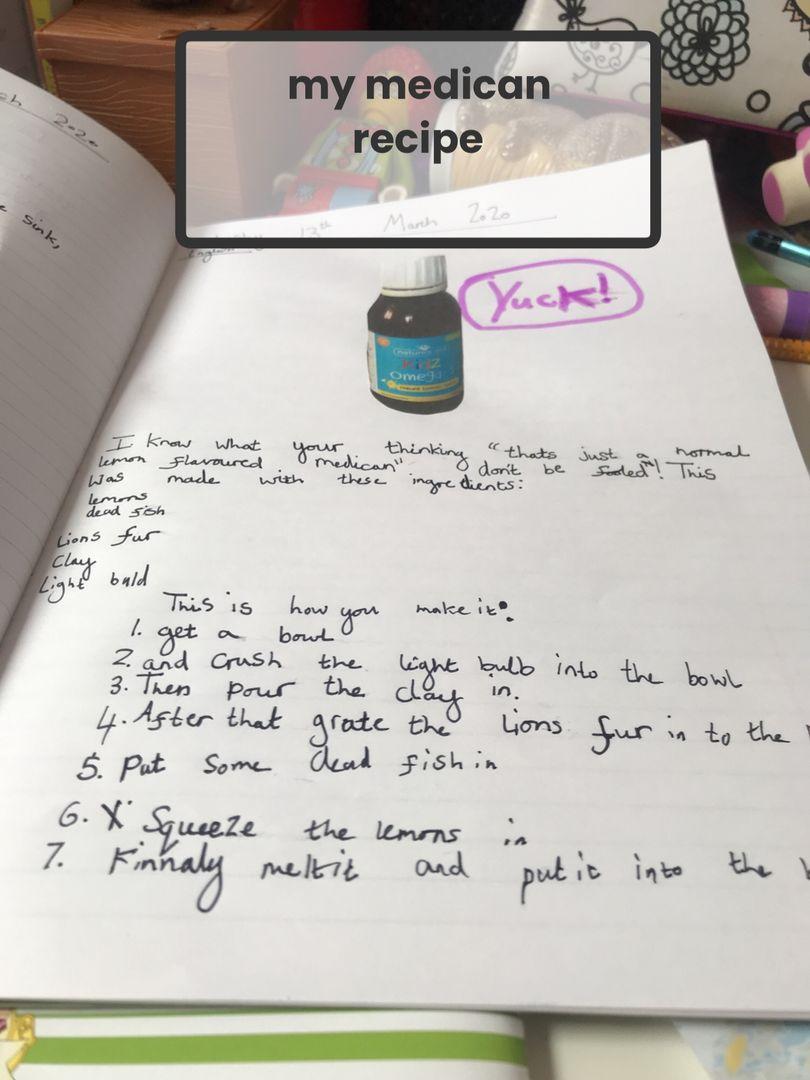 my medican
recipe
2020
sink,
13th March 2020
English
Yuck!
nature's
Kidz
omega
I know what your thinking "thats just a normal
lemon flavoured medican" don't be fooled"! This
was made with these ingredients:
lemons
dead fish
Lions fur
Clay
Light buld
This is how you make it:
1. get a bowl
2. and crush the light bulb into the bowl
3. Then pour the clay in.
4. After that grate the Lions fur in to the
5. Put some dead fish in
6. X Squeeze the lemons in
7. Finnaly melt it and put it into the